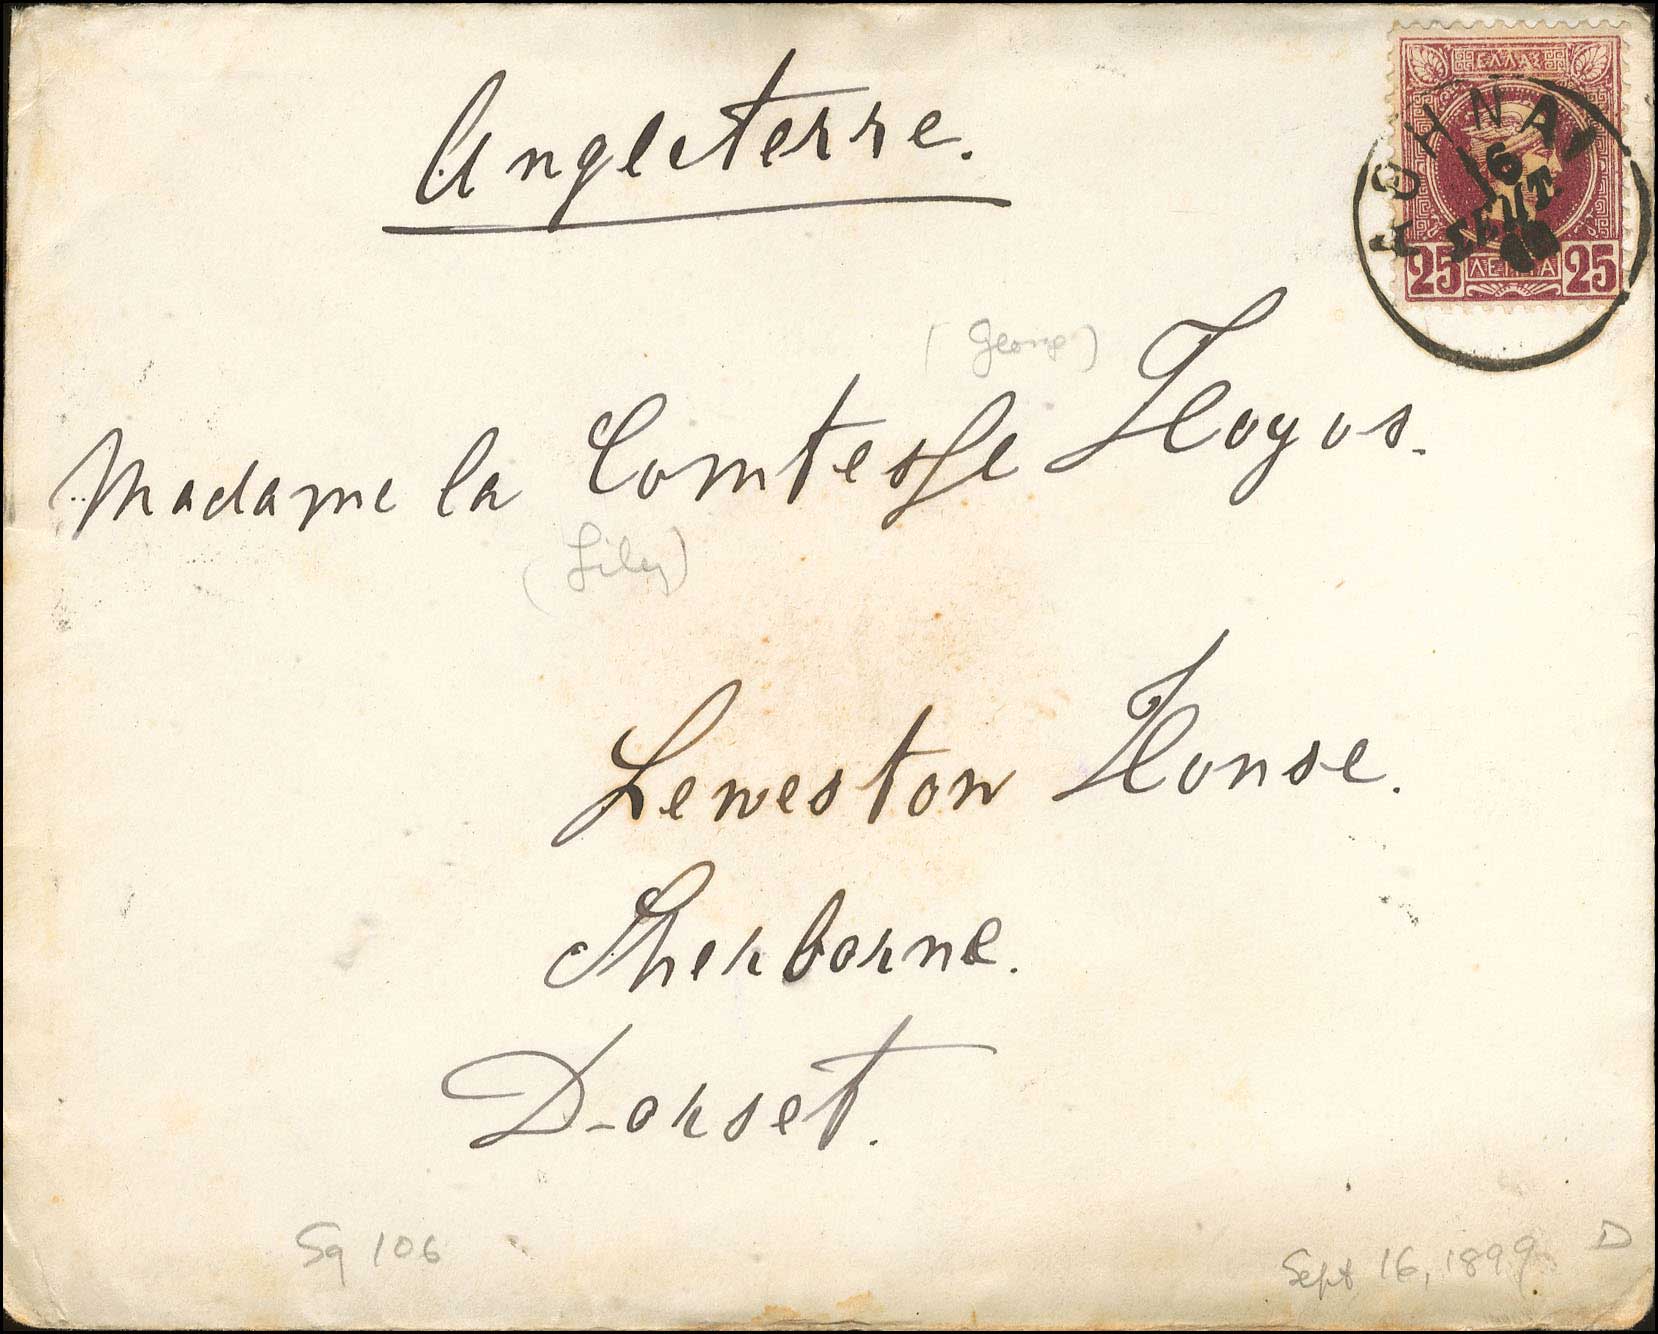 Angleterre.
ΕΛΛΑΣ
ΑΘΗΝΑΙ
16
ΣΕΠΤ.
25 ΛΕΠΤΑ 25
(George)
Madame la Comtesse Hoyos.
(Lily)
Leweston House.
Sherborne.
Dorset.
Sg 106
Sept 16, 1899 D